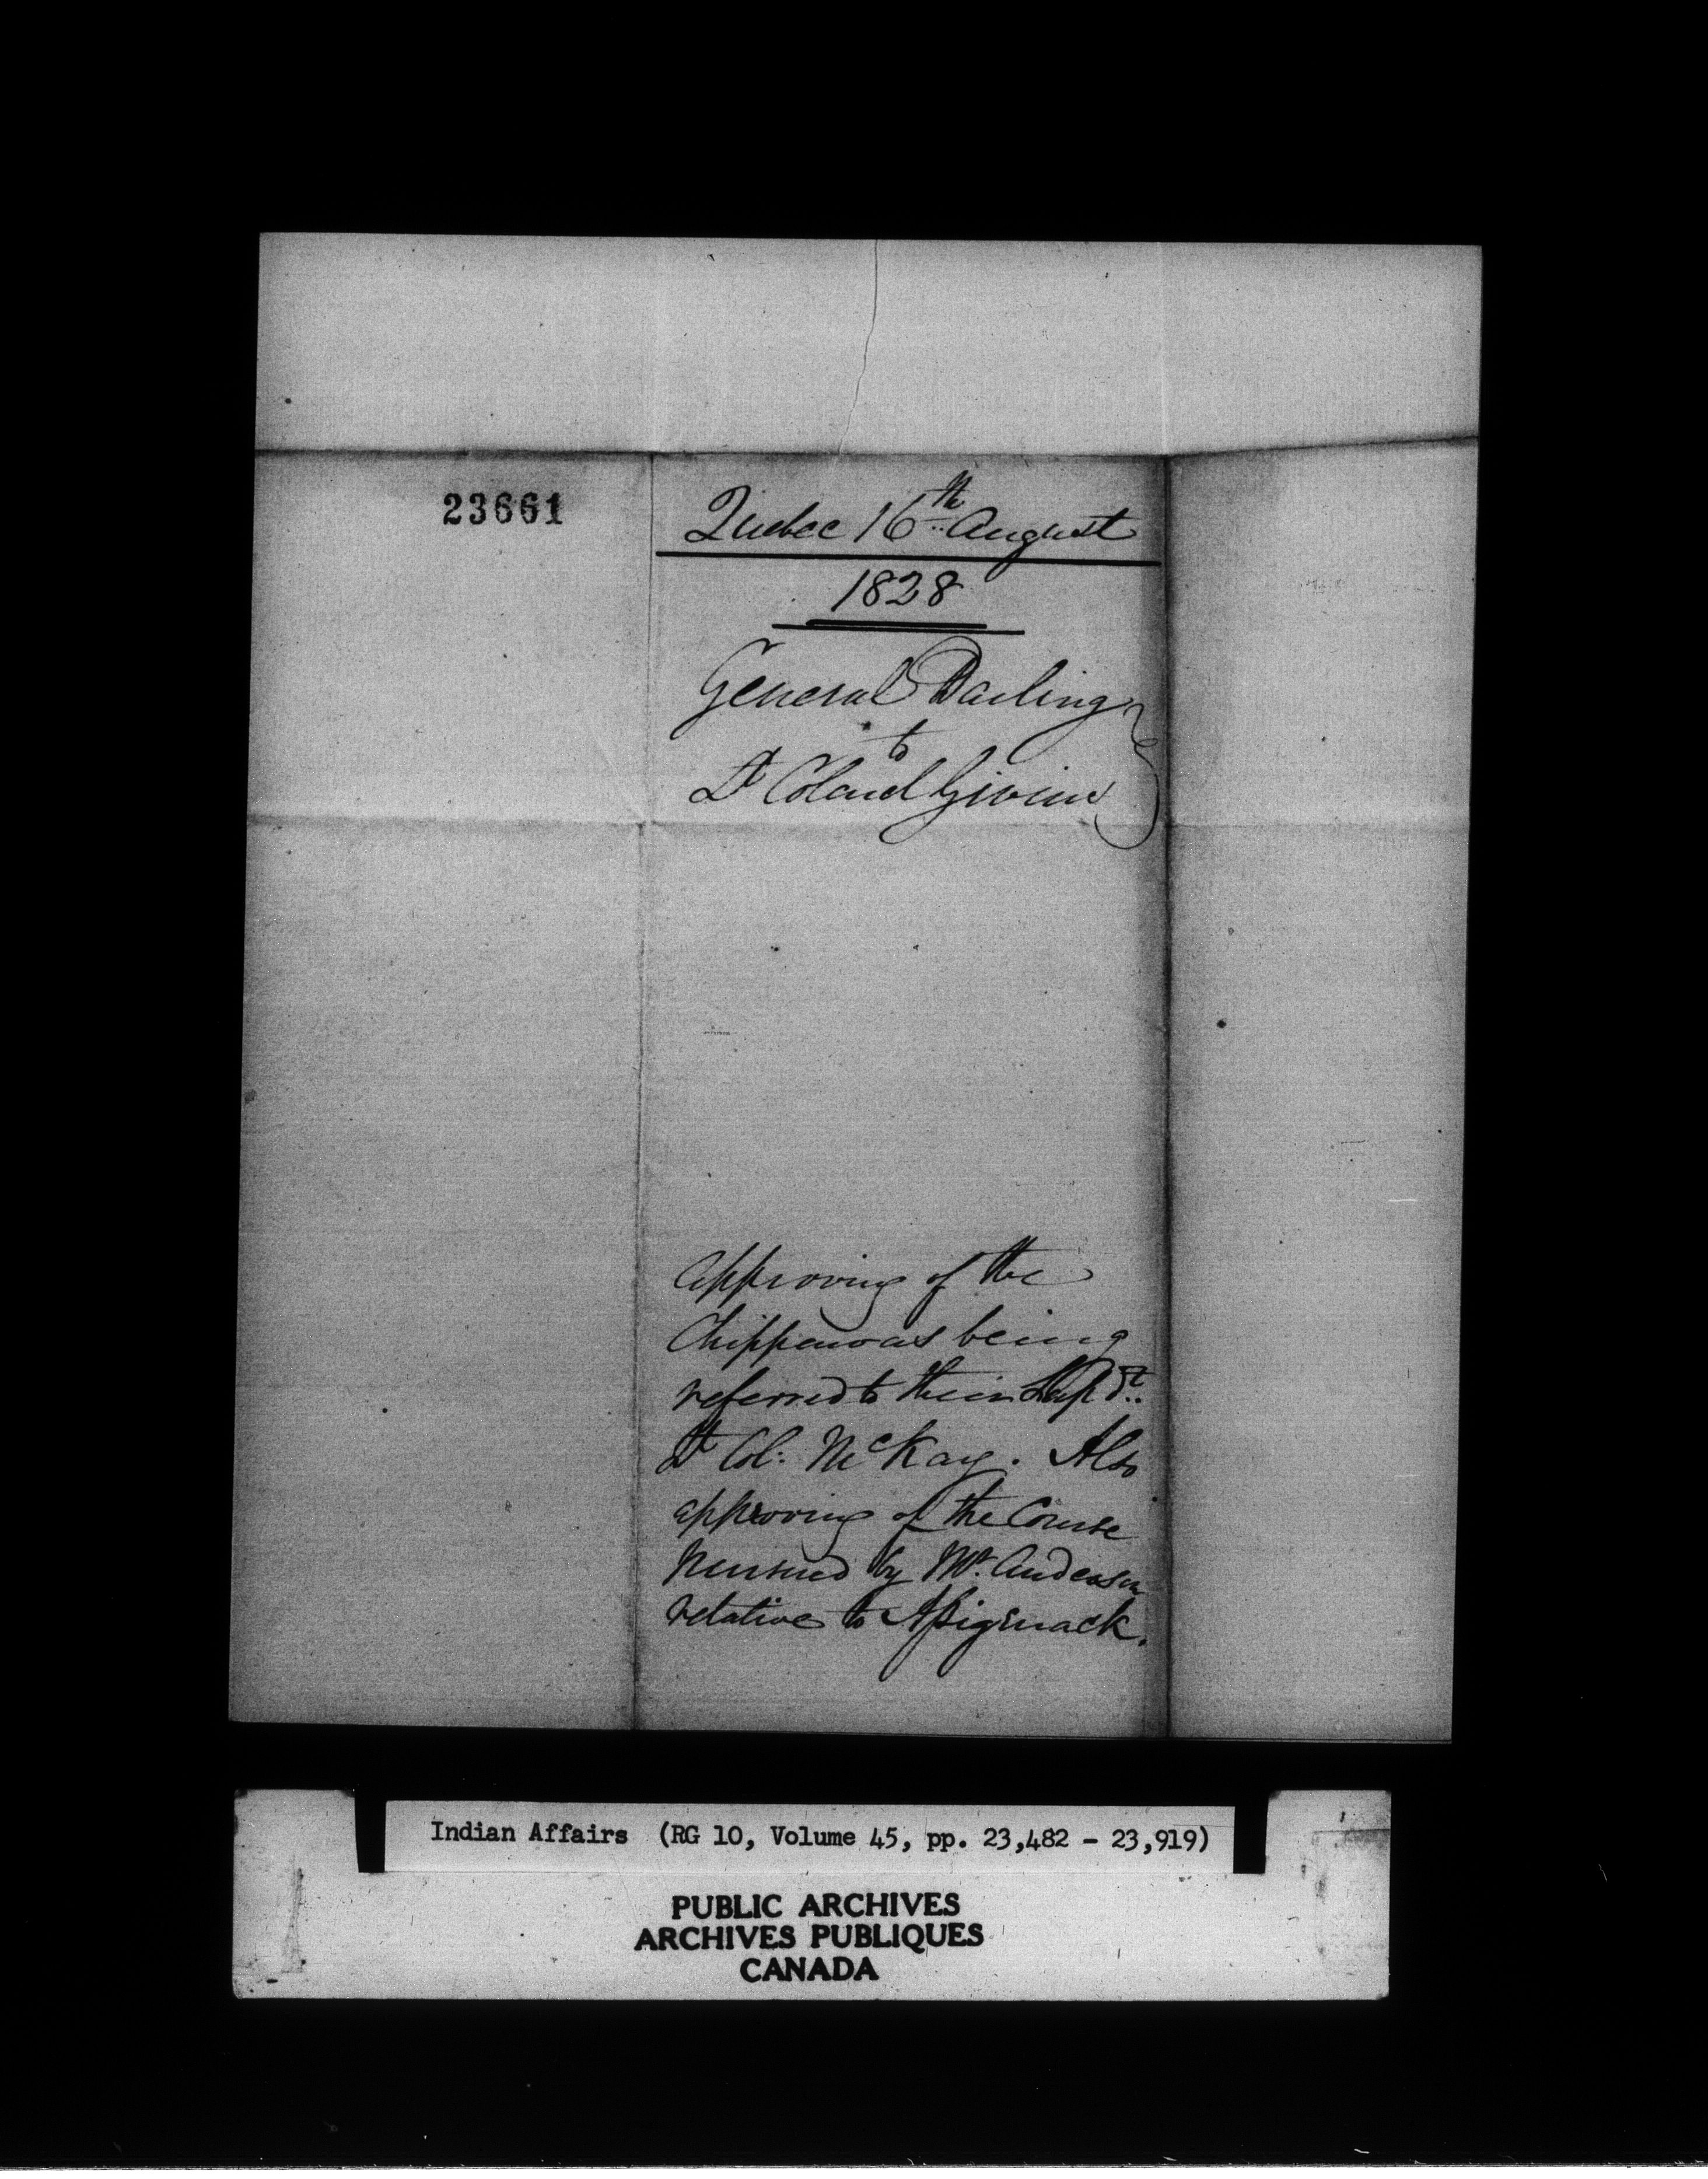 23661
Quebec 16th August
1828
General Darling
to
Lt Colonel Givins
Approving of the
Chippewas being
referred to their Supdt.
Lt Col: McKay. Also
approving of the Course
pursued by Mr. Anderson
relative to Assiginack.
Indian Affairs (RG 10, Volume 45, pp. 23,482 - 23,919)
PUBLIC ARCHIVES
ARCHIVES PUBLIQUES
CANADA